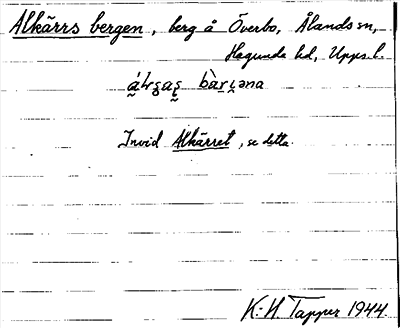 Alkärrs bergen, berg å Överbo, Ålands sn,
Hagunda hd, Upps. l.
Invid Alkärret, se detta.
K-H Tapper 1944